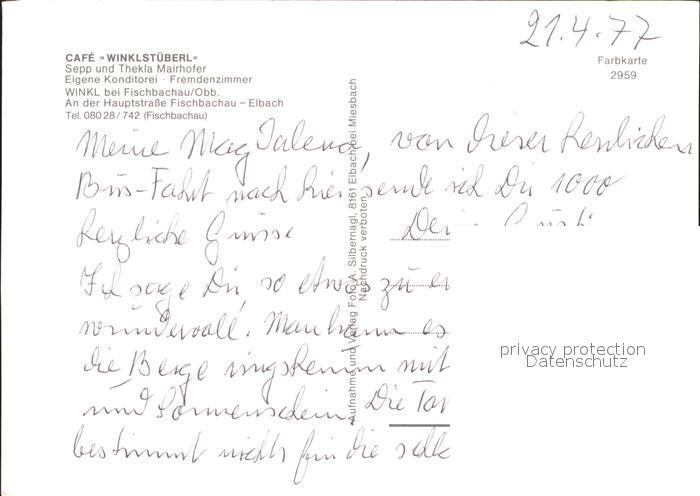 21.4.77
CAFÉ »WINKLSTÜBERL«
Sepp und Thekla Mairhofer
Eigene Konditorei · Fremdenzimmer
WINKL bei Fischbachau/Obb.
An der Hauptstraße Fischbachau – Elbach
Tel. 08028/742 (Fischbachau)
Farbkarte
2959
Meine Magdalena, von dieser herrlichen
Bus-Fahrt nach hier sende ich Dir 1000
herzliche Grüsse Dein
Ich sage Dir, so etwas zu
wundervoll. Man kann es
die Berge ringsherum mit
und Sonnenschein. Die
bestimmt nichts für die
Aufnahme und Verlag Foto A. Silbernagl, 8161 Elbach bei Miesbach
Nachdruck verboten
privacy protection
Datenschutz